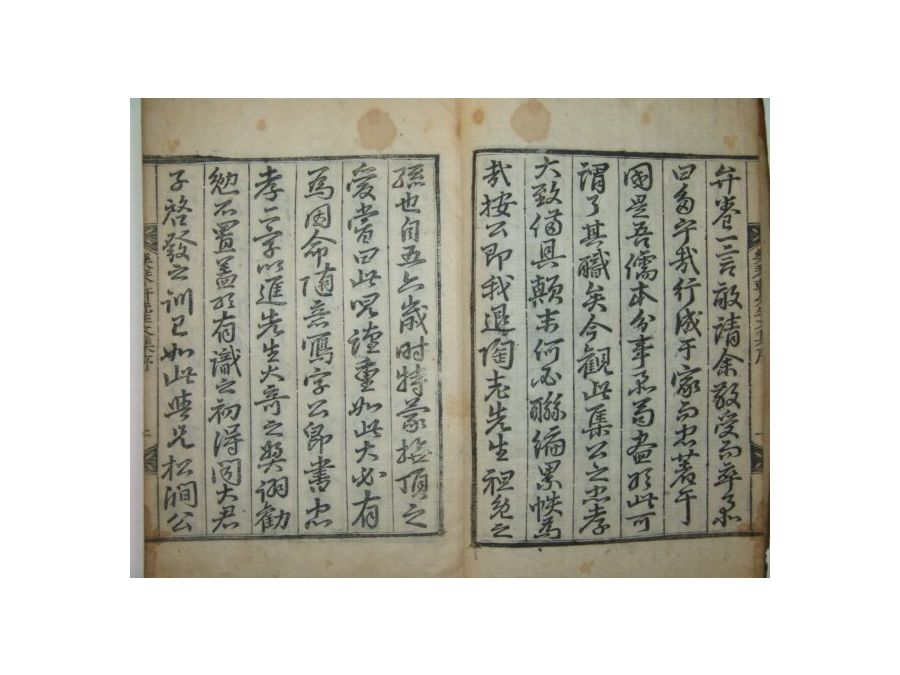 弁卷一言敢請余敬受而卒業
曰多乎哉行成于家而忠著于
國是吾儒本分事業苟盡於此可
謂了其職矣今觀此集公之忠孝
大致備具顛末何必聯編累帙爲
哉按公即我退陶老先生 之
孫也自五六歲時特蒙 頂之
愛嘗曰此兒謹重如此大必有
爲因命隨意寫字公即書忠
孝二字以進先生大奇之獎詡勸
勉不置盖於有識之初得聞大君
子啓發之訓已如此與兄松澗公
先生文集序